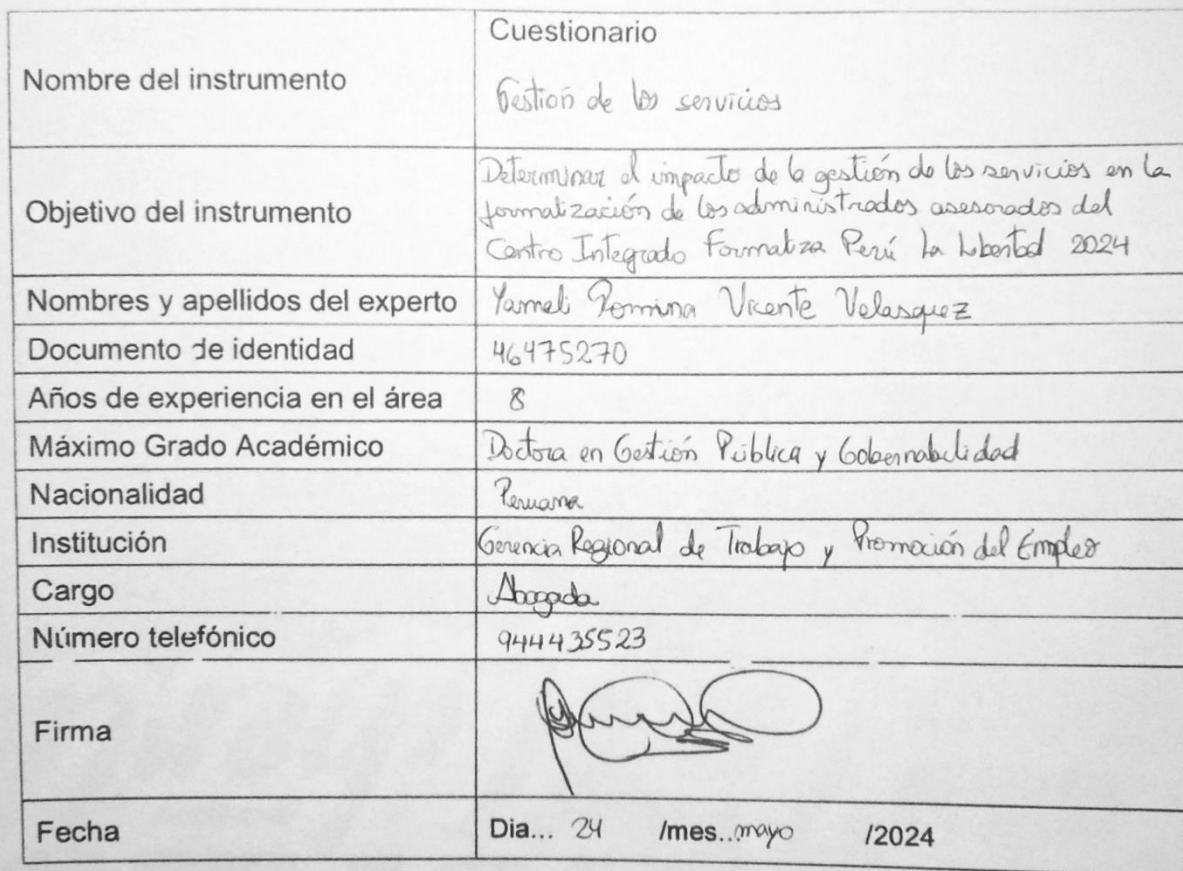 Cuestionario
Nombre del instrumento
Gestión de los servicios
Objetivo del instrumento
Determinar el impacto de la gestión de los servicios en la
formalización de los administrados asesorados del
Centro Integrado Formaliza Perú La Libertad 2024
Nombres y apellidos del experto Yameli Romina Vicente Velasquez
Documento de identidad 46475270
Años de experiencia en el área 8
Máximo Grado Académico Doctora en Gestión Pública y Gobernabilidad
Nacionalidad Peruana
Institución Gerencia Regional de Trabajo y Promoción del Empleo
Cargo Abogada
Número telefónico 944435523
Firma
Fecha Dia... 24 /mes..mayo /2024